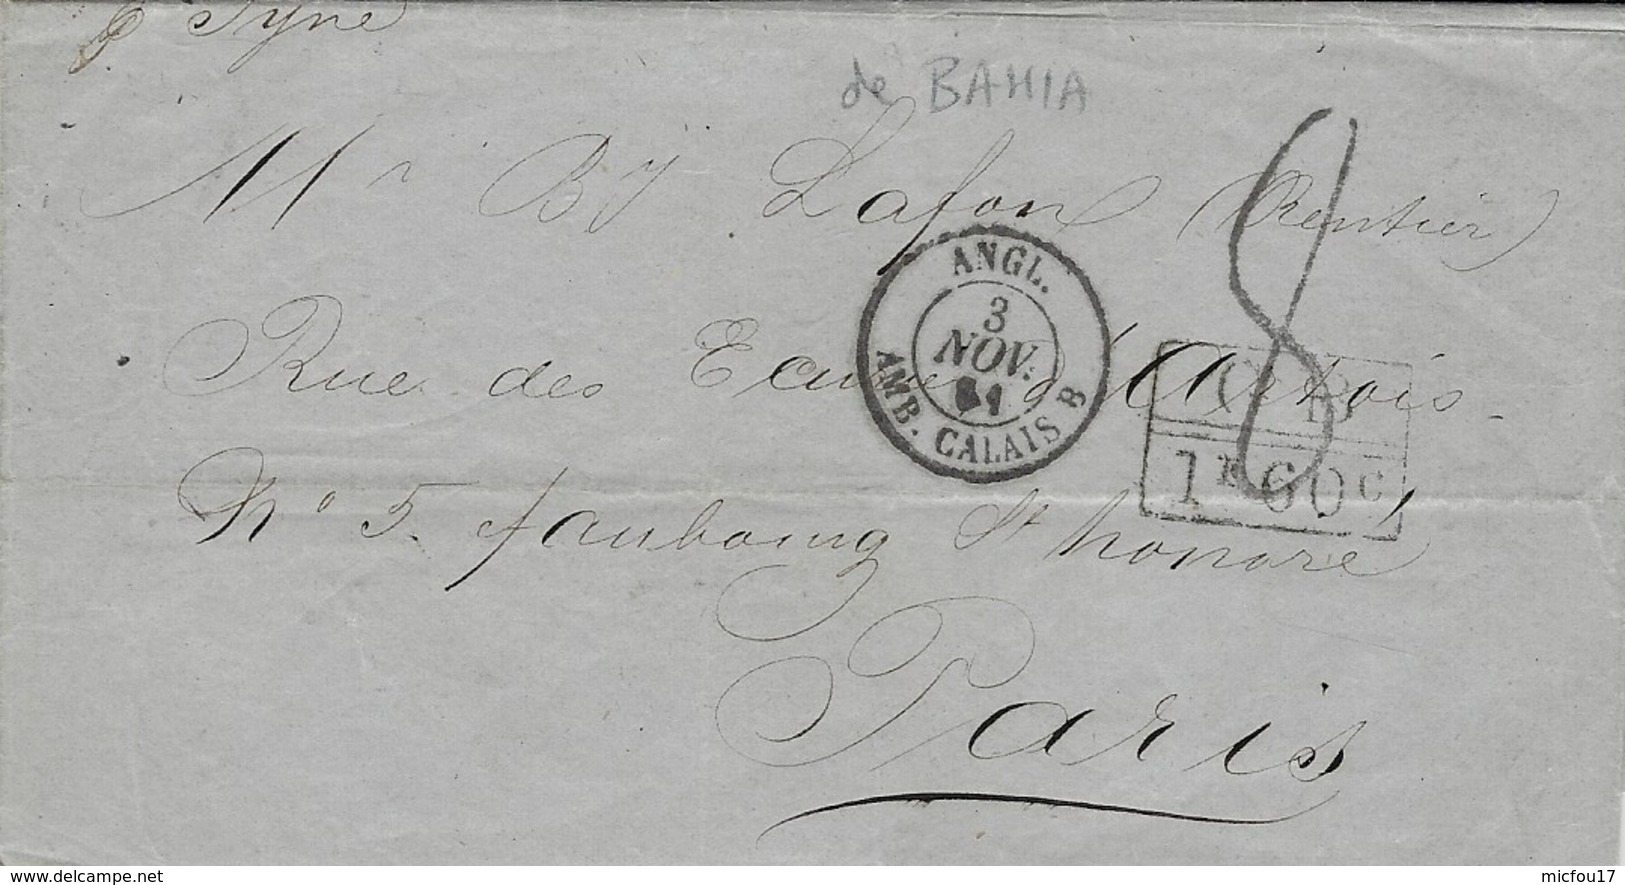 p Tyne
de BAHIA
Mr BJ Lafon (Rentier)
Rue des Ecuries d'Artois
ANGL.
3
NOV.
61
AMB. CALAIS B
8
GB
1F60C
No 5. faubourg St honore
Paris
www.delcampe.net
micfou17